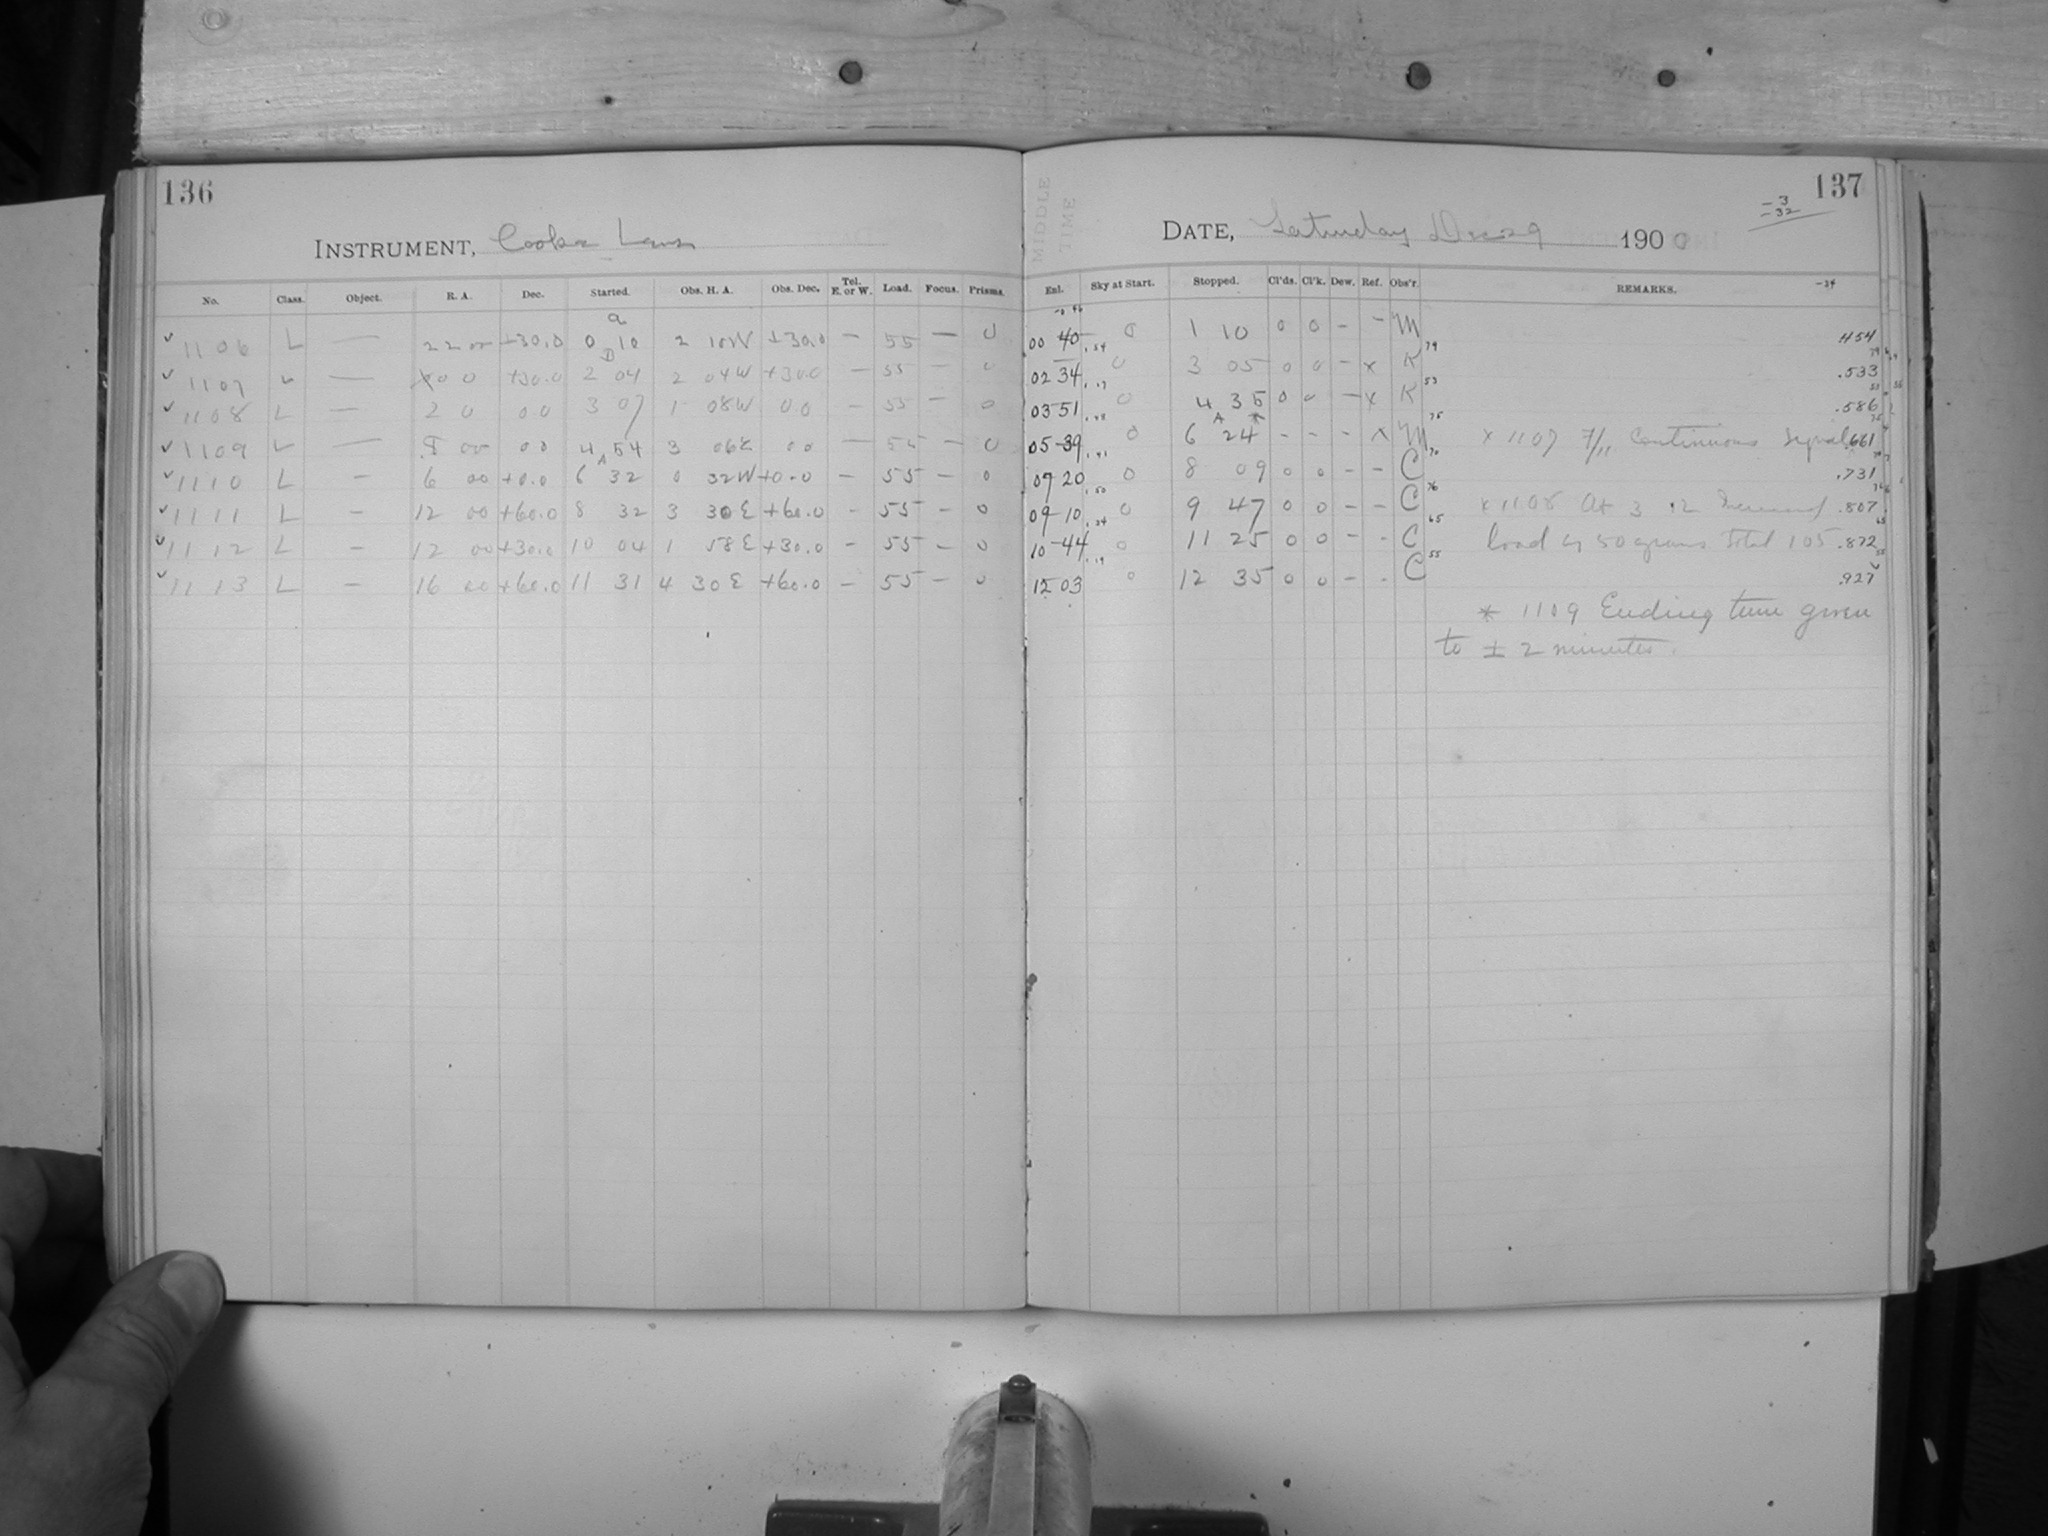 136
INSTRUMENT, Cooke Lens
No. Class. Object. R. A. Dec. Started. Obs. H. A. Obs. Dec. Tel. E. or W. Load. Focus. Prisms.
a
✓ 1106 L — 22 00 +30.0 0 10 2 10W +30.0 — 55 — 0
D
✓ 1107 L — 0 0 +30.0 2 04 2 04W +30.0 — 55 — 0
✓ 1108 L — 2 0 0 0 3 07 1 08W 0.0 — 55 — 0
✓ 1109 L — 8 00 0 0 4 54 3 06E 0 0 — 55 — 0
A
✓ 1110 L — 6 00 +0.0 6 32 0 32W +0.0 — 55 — 0
✓ 1111 L — 12 00 +60.0 8 32 3 30E +60.0 — 55 — 0
✓ 1112 L — 12 00 +30.0 10 04 1 58E +30.0 — 55 — 0
✓ 1113 L — 16 00 +60.0 11 31 4 30E +60.0 — 55 — 0
137
MIDDLE
TIME
-3
-32
DATE, Saturday Dec 29 1900
Enl. Sky at Start. Stopped. Cl'ds. Cl'k. Dew. Ref. Obs'r. REMARKS.
00 40 0 1 10 0 0 - - M .454
02 34 0 3 05 0 0 - x K .533
03 51 0 4 35 0 0 - x K .586
A *
05-39 0 6 24 - - - x M x 1107 7/11 Continuous Signal .661
07 20 0 8 09 0 0 - - C .731
09-10 0 9 47 0 0 - - C x 1108 At 3 12 Increased .807
10-44 0 11 25 0 0 - - C load by 50 grams total 105 .872
12 03 0 12 35 0 0 - - C .927
* 1109 Ending time given
to ± 2 minutes.